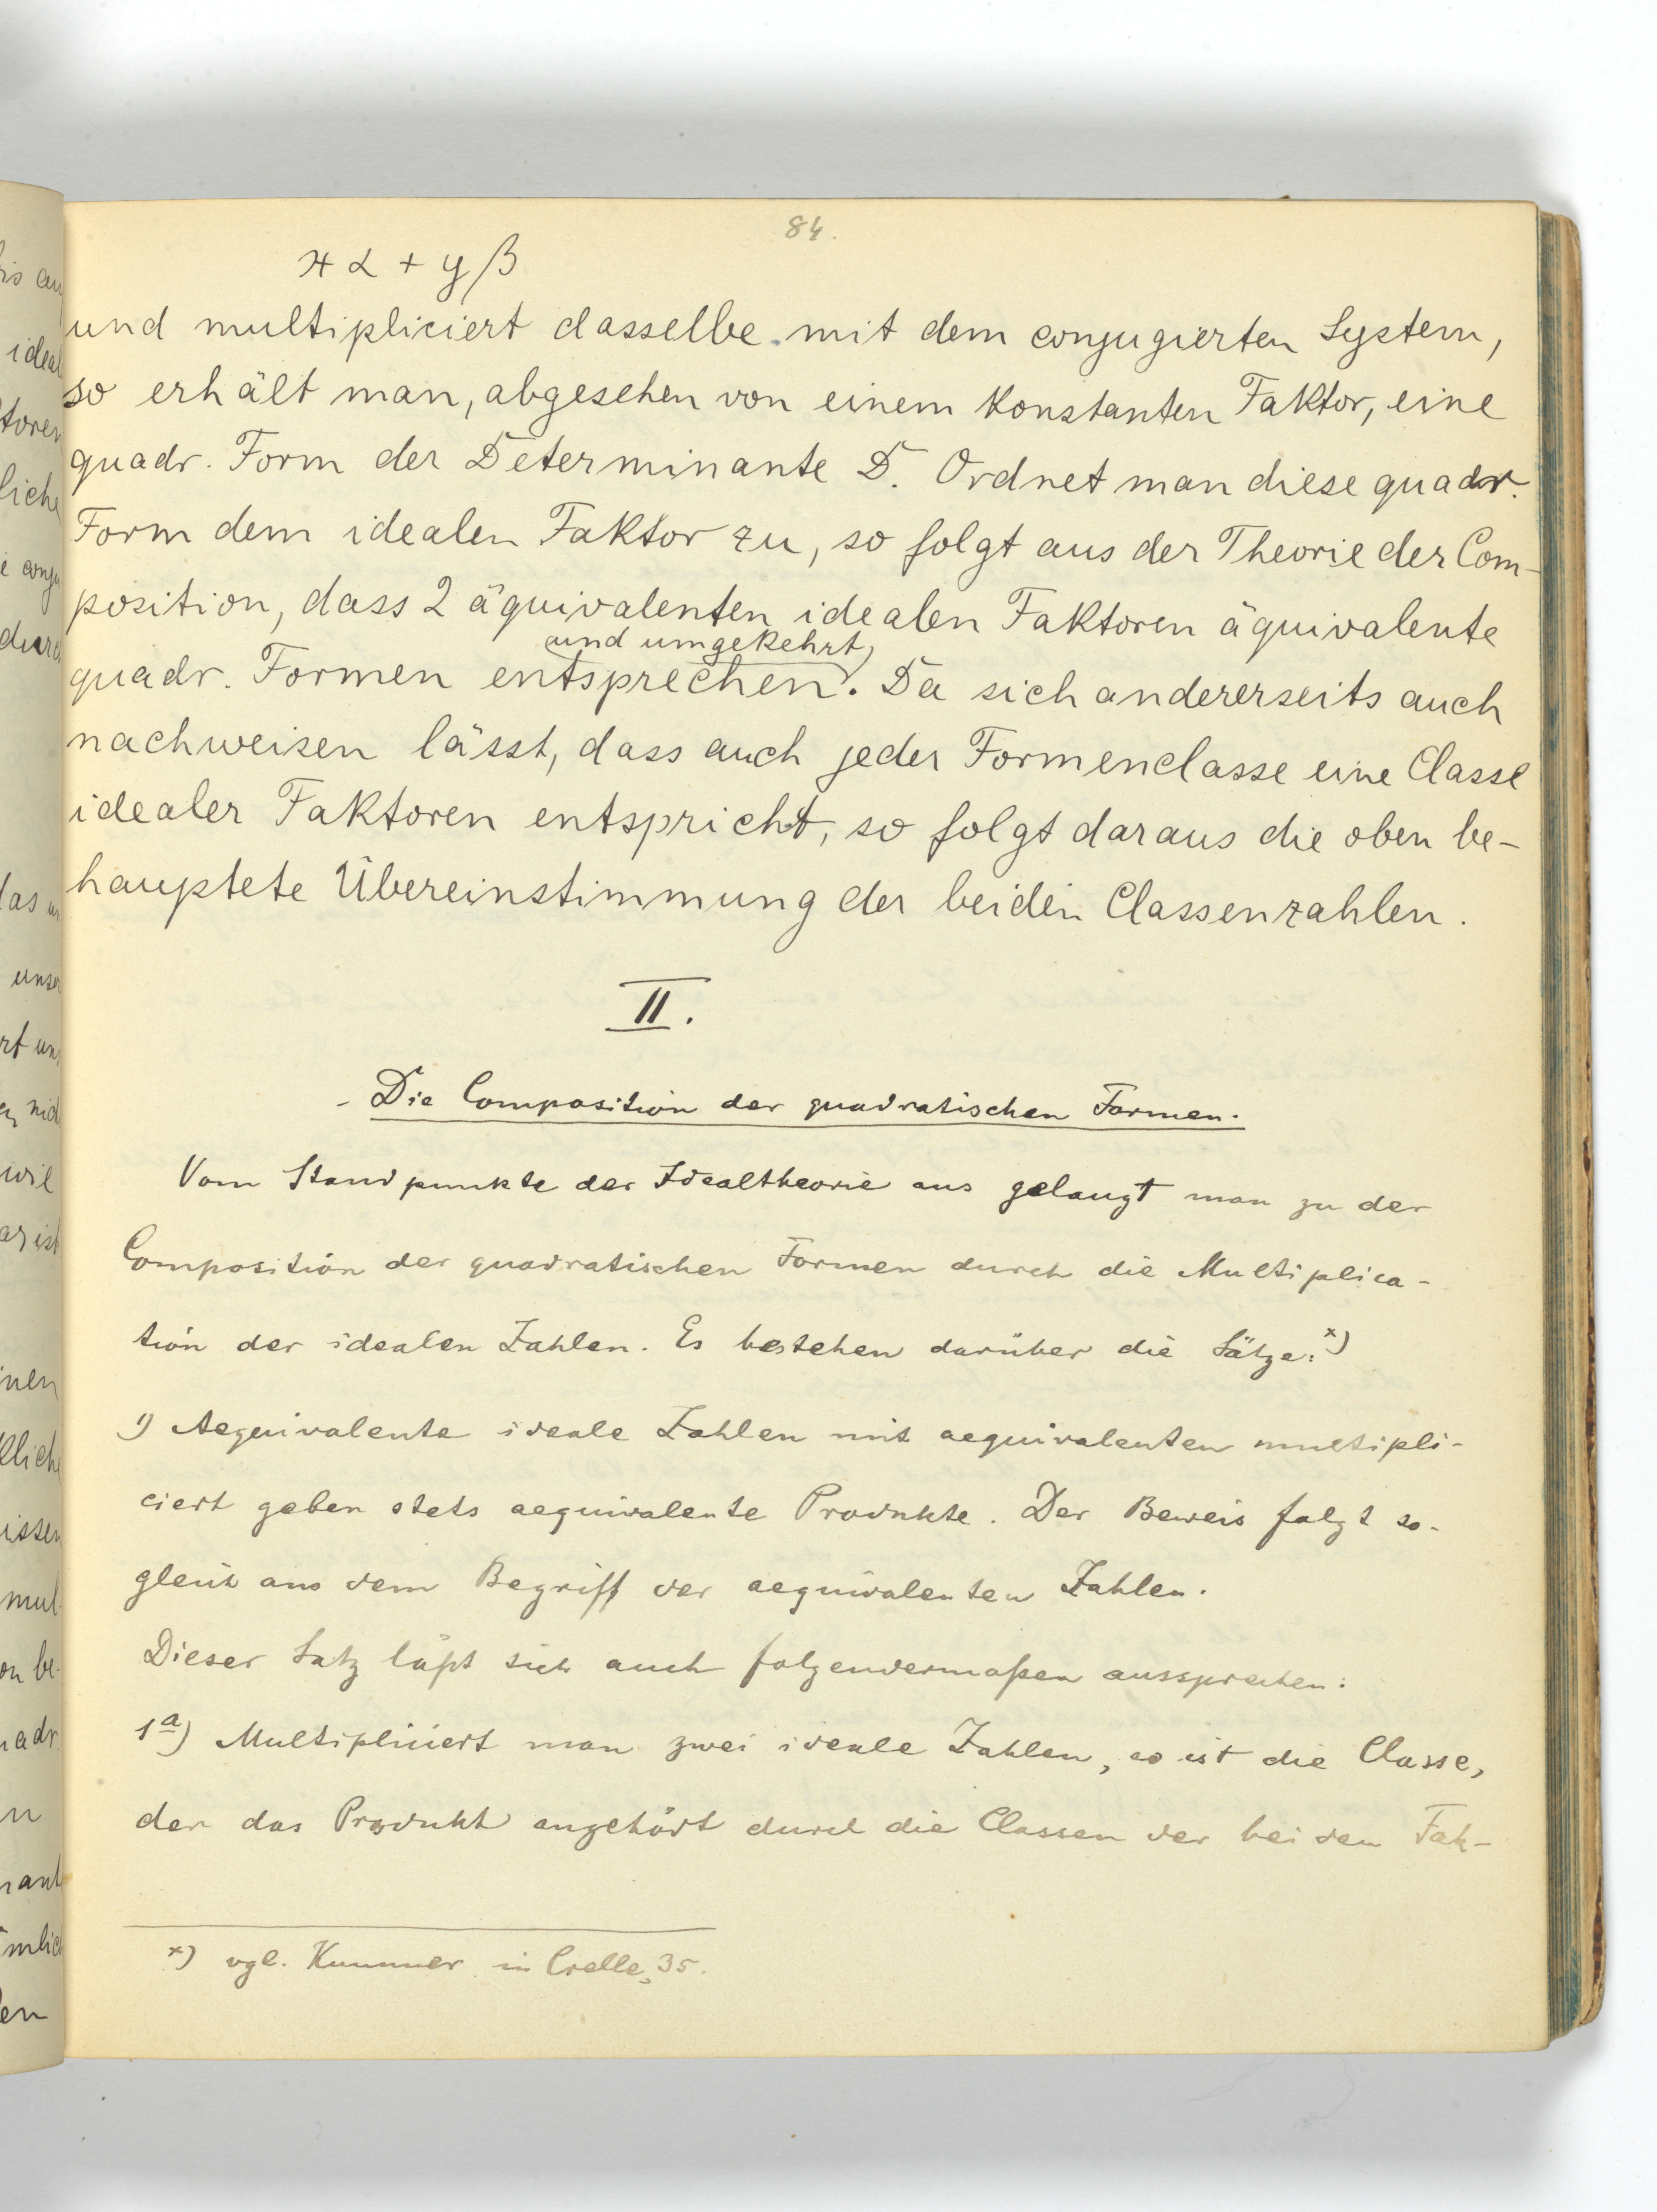 84.
xα + yβ
und multipliciert dasselbe mit dem conjugierten System,
so erhält man, abgesehen von einem konstanten Faktor, eine
quadr. Form der Determinante D. Ordnet man diese quadr.
Form dem idealen Faktor zu, so folgt aus der Theorie der Com-
position, dass 2 äquivalenten idealen Faktoren äquivalente
und umgekehrt
quadr. Formen entsprechen. Da sich andererseits auch
nachweisen lässt, dass auch jeder Formenclasse eine Classe
idealer Faktoren entspricht, so folgt daraus die oben be-
hauptete Übereinstimmung der beiden Classenzahlen.
II.
Die Composition der quadratischen Formen.
Vom Standpunkte der Idealtheorie aus gelangt man zu der
Composition der quadratischen Formen durch die Multiplica-
tion der idealen Zahlen. Es bestehen darüber die Sätze: x)
1) Aequivalente ideale Zahlen mit aequivalenten multipli-
ciert geben stets aequivalente Produkte. Der Beweis folgt so-
gleich aus dem Begriff der aequivalenten Zahlen.
Dieser Satz läßt sich auch folgendermaßen aussprechen:
1a) Multipliciert man zwei ideale Zahlen, so ist die Classe,
der das Produkt angehört durch die Classen der beiden Fak-
x) vgl. Kummer in Crelle, 35.